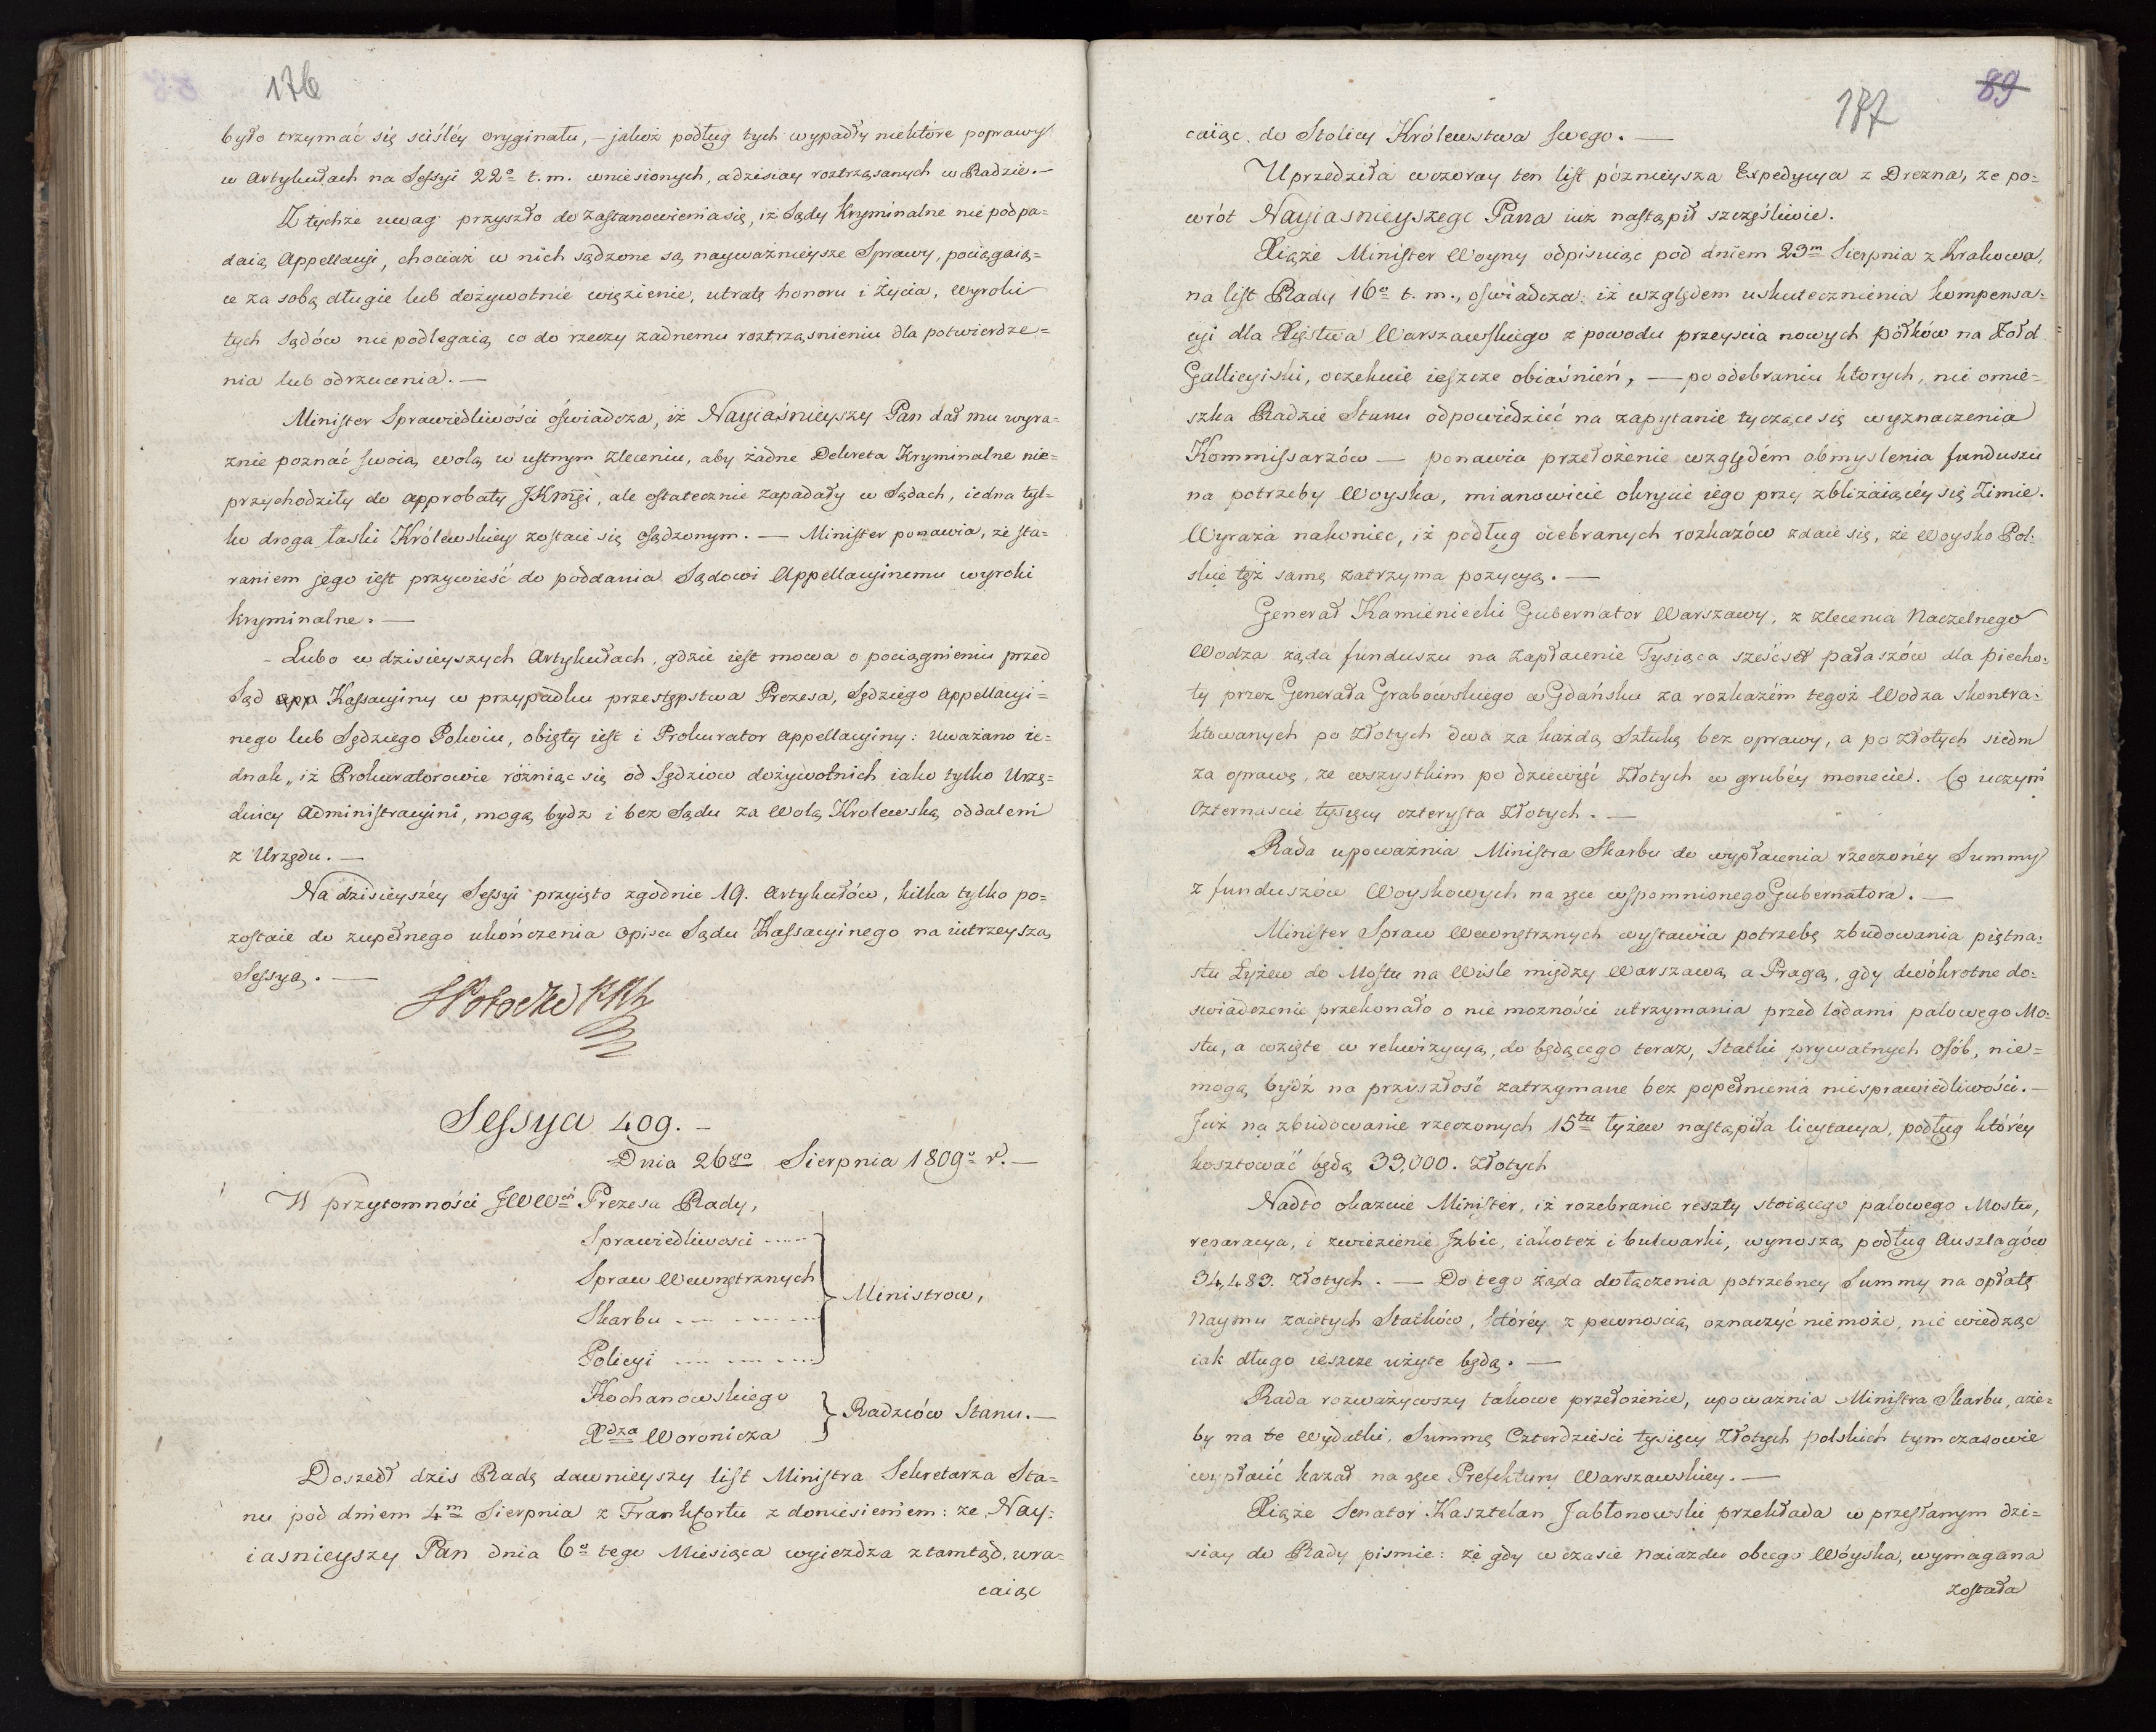 176
było trzymać się sciśléy oryginału, – jakoż podług tych wypadły niektóre poprawy
w Artykułach na Sessyi 22º t. m. wniesionych, a dzisiay roztrząsanych w Radzie. —
Z tychże uwag przyszło do zastanowienia się, iż Sądy Kryminalne nie podpa=
daią Appellacyi, chociaż w nich sądzone są nayważnieysze Sprawy, pociągaią=
ce za sobą długie lub dożywotnie więzienie, utratę honoru i życia, wyroki
tych Sądów nie podlegaią co do rzeczy żadnemu roztrząsnieniu dla potwierdze=
nia lub odrzucenia. —
Minister Sprawiedliwości óświadcza, iż Nayiaśnieyszy Pan dał mu wyra=
znie poznać swoią wolą w ustnym zleceniu, aby żadne Dekreta Kryminalne nie=
przychodziły do approbaty JKmci, ale ostatecznie zapadały w Sądach, iedna tyl=
ko droga łaski Królewskiey zostaie się osądzonym. — Minister ponawia, że sta=
raniem jego iest przywieść do poddania Sądowi Appellacyinemu wyroki
kryminalne. —
– Lubo w dzisieyszych Artykułach, gdzie iest mowa o pociągnieniu przed
Sąd app Kassacyiny w przypadku przestępstwa Prezesa, Sędziego Appellacyi=
nego lub Sędziego Pokoiu, obięty iest i Prokurator appellacyiny: uważano ie=
dnak, iż Prokuratorowie różniąc się od Sędziow dożywotnich iako tylko Urzę=
dnicy Administracyini, mogą bydz i bez Sądu za Wolą Krolewską oddaleni
z Urzędu. —
Na dzisieyszéy Sessyi przyięto zgodnie 19. Artykułów, kilka tylko po=
zostaie do zupełnego ukończenia Opisu Sądu Kassacyinego na iutrzeyszą
Sessyą. —
Sessya 409. –
Dnia 26go Sierpnia 1809º r. —
W przytomności JWW Prezesa Rady,
Sprawiedliwosci
Spraw Wewnętrznych
Skarbu
Ministrow,
Policyi
Kochanowskiego
Radzców Stanu. —
Xdza Woronicza
Doszedł dzis Radę dawnieyszy list Ministra Sekretarza Sta=
nu pod dniem 4m Sierpnia z Frankfortu z doniesieniem: ze Nay=
iasnieyszy Pan dnia 6º tego Miesiąca wyiezdza ztamtąd, wra=
caiąc
89
177
caiąc do Stolicy Królewstwa swego. —
Uprzedziła wczoray ten list póznieysza Expedycya z Drezna, ze po=
wrót Nayiasnieyszego Pana iuż nastąpił szczęśliwie.
Xiąże Minister Woyny odpisuiąc pod dniem 23m Sierpnia z Krakowa,
na list Rady 16º t. m., oswiadcza: iż względem uskutecznienia kompensa=
cyi dla Xięstwa Warszawskiego z powodu przeyscia nowych półków na Żołd
Gallicyiski, oczekuie ieszcze obiaśnień, — po odebraniu ktorych, nie omie=
szka Radzie Stanu odpowiedzieć na zapytanie tyczące się wyznaczenia
Kommissarzów — ponawia przełożenie względém obmyslenia funduszu
na potrzeby Woyska, mianowicie okrycie iego przy zbliżaiącéy się Zimie.
Wyraża nakoniec, iż podług odebranych rozkazów zdaie się, że Woysko Pol=
skie tęż samą zatrzyma pozycyą. —
Generał Kamieniecki Gubernator Warszawy, z zlecenia Naczelnego
Wodza żąda funduszu na zapłacenie Tysiąca sześćset pałaszów dla piecho=
ty przez Generała Grabowskiego w Gdańsku za rozkazém tegoż Wodza skontra=
ktowanych po Złotych dwa za każdą Sztukę bez oprawy, a po złotych siedm
za oprawę, ze wszystkim po dziewięć Złotych w grubéy monecie. Co uczyni
Czternascie tysięcy czterysta Złotych. —
Rada upoważnia Ministra Skarbu do wypłacenia rzeczonéy Summy
z funduszów Woyskowych na ręce wspomnionego Gubernatora. —
Minister Spraw Wewnętrznych wystawia potrzebę zbudowania piętna=
stu Łyżew do Mostu na Wisle między Warszawą a Pragą, gdy dwókrotne do=
swiadczenie przekonało o nie możności utrzymania przed lodami palowego Mo=
stu, a wzięte w rekwizycyą, do będącego teraz, Statki prywatnych osób, nie=
mogą bydź na przyszłość zatrzymane bez popełnienia niesprawiedliwości. —
Już na zbudowanie rzeczonych 15tu łyżew nastąpiła licytacya, podług któréy
kosztować będą 33,000. Złotych
Nadto okazuie Minister, iż rozebranie reszty stoiącego palowego Mostu,
reparacya, i zwiezienie Izbic, iakoteż i bulwarki, wynoszą podług Auszlagów
34,483. Złotych. — Do tego żąda dołączenia potrzebney Summy na opłatę
Naymu zaiętych Statków, któréy z pewnością oznaczyć niemoże, nie wiedząc
iak długo ieszcze użyte będą. —
Rada rozważywszy takowe przełożenie, upoważnia Ministra Skarbu, aże=
by na te wydatki, Summę Czterdziesci tysięcy Złotych polskich tymczasowie
wypłacić kazał na ręce Prefektury Warszawskiey. —
Xiąże Senator Kasztelan Jabłonowski przekłada w przesłanym dzi=
siay do Rady pismie: że gdy w czasie Naiazdu obcego Wóyska, wymagana
została